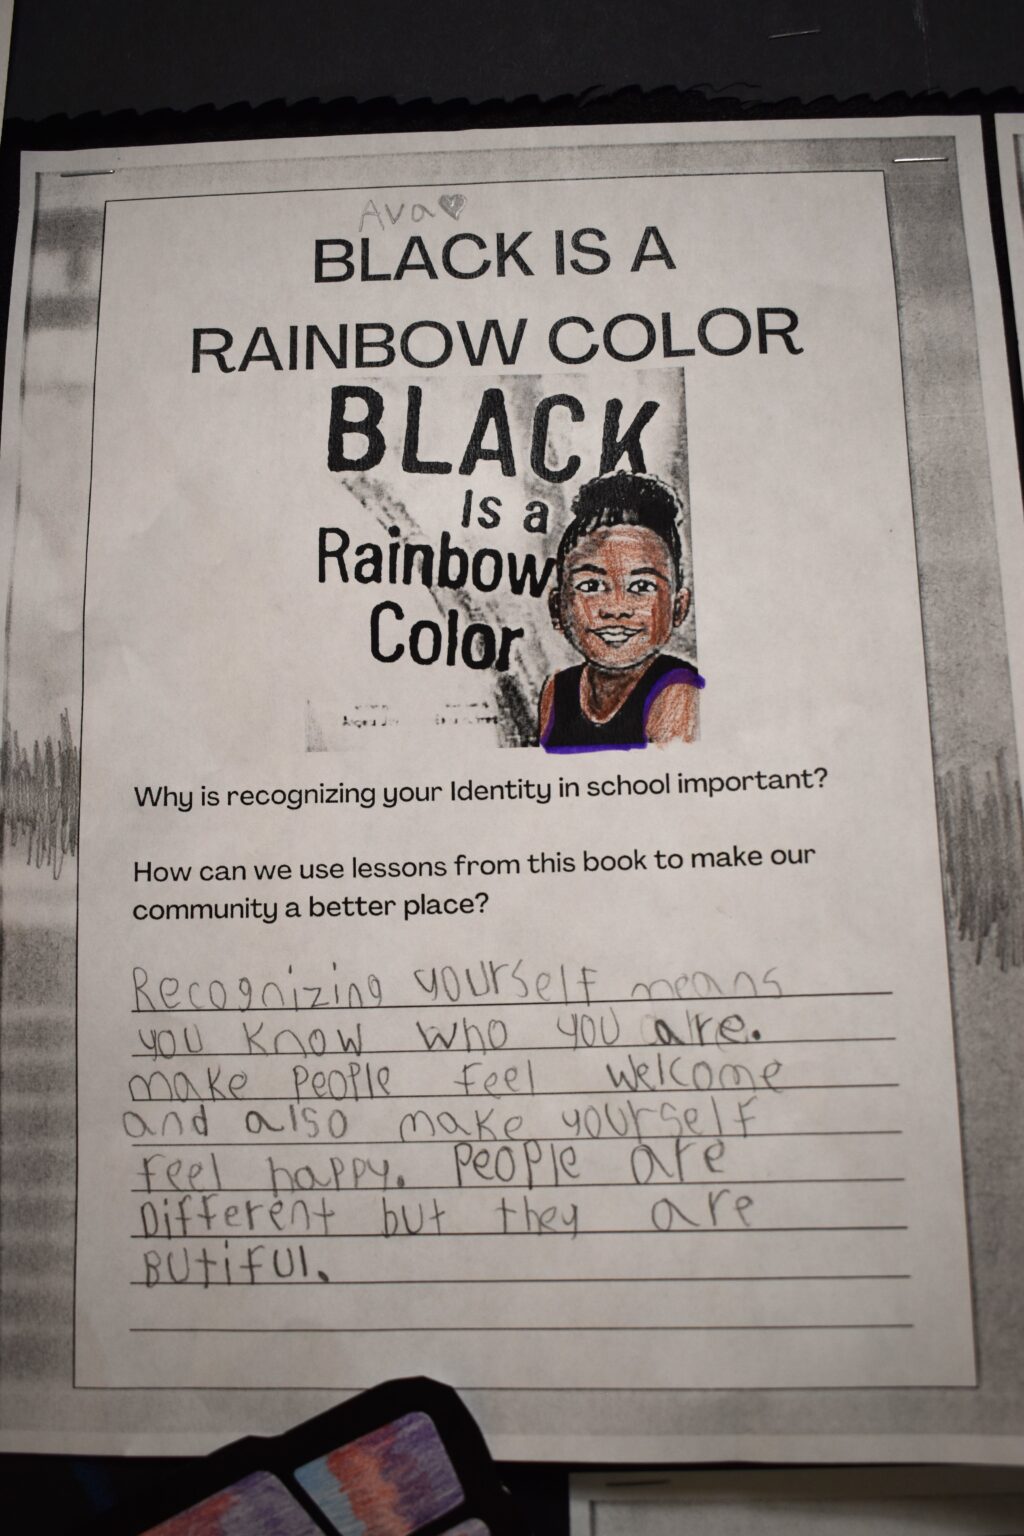 Ava
BLACK IS A
RAINBOW COLOR
BLACK
Is a
Rainbow
Color
Why is recognizing your Identity in school important?
How can we use lessons from this book to make our
community a better place?
Recognizing yourself means
you know who you are.
make people feel welcome
and also make yourself
feel happy. People are
Different but they are
Butiful.